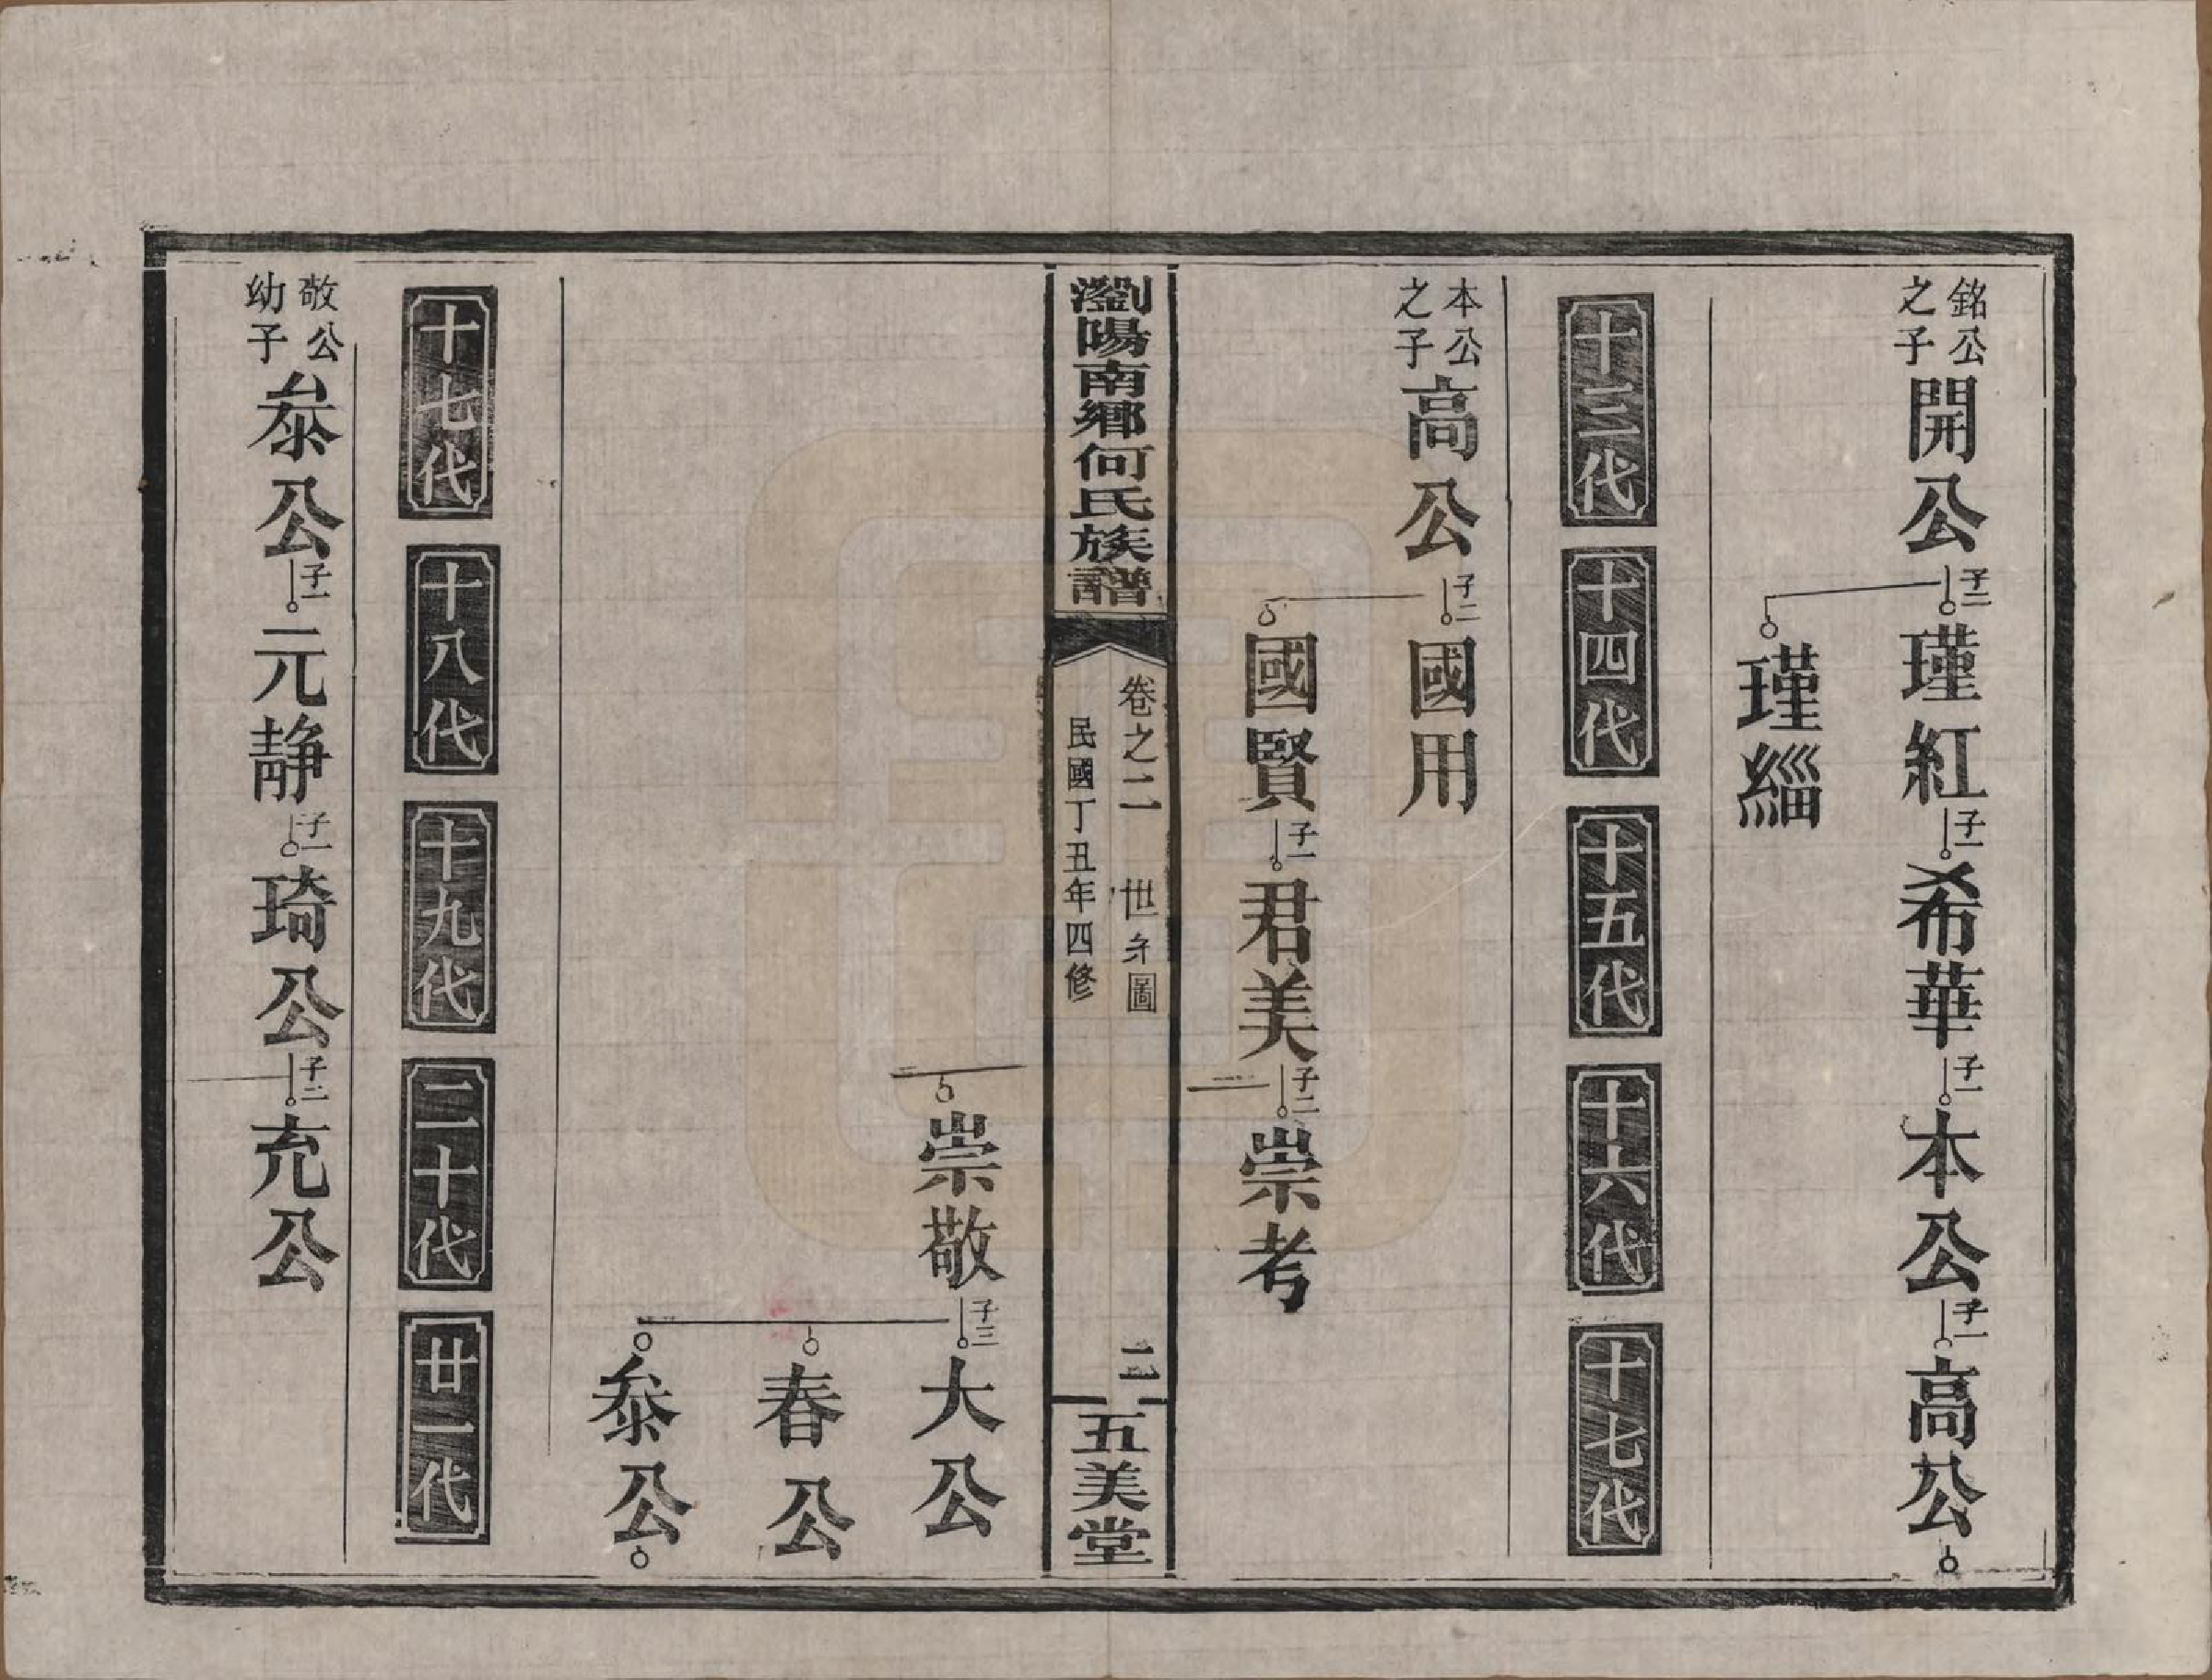 銘公
之子
開公 子二 瑾紅 子一 希華 子一 本公 子一 高公
瑾緇
十三代 十四代 十五代 十六代 十七代
本公
之子
高公 子二 國用
國賢 子一 君美 子二 崇考
瀏陽南鄉何氏族譜
卷之二 世系圖 二
民國丁丑年四修
五美堂
崇敬 子三 大公
春公
泰公
十七代 十八代 十九代 二十代 廿一代
敬公
幼子
泰公 子一 元静 子一 琦公 子二 充公